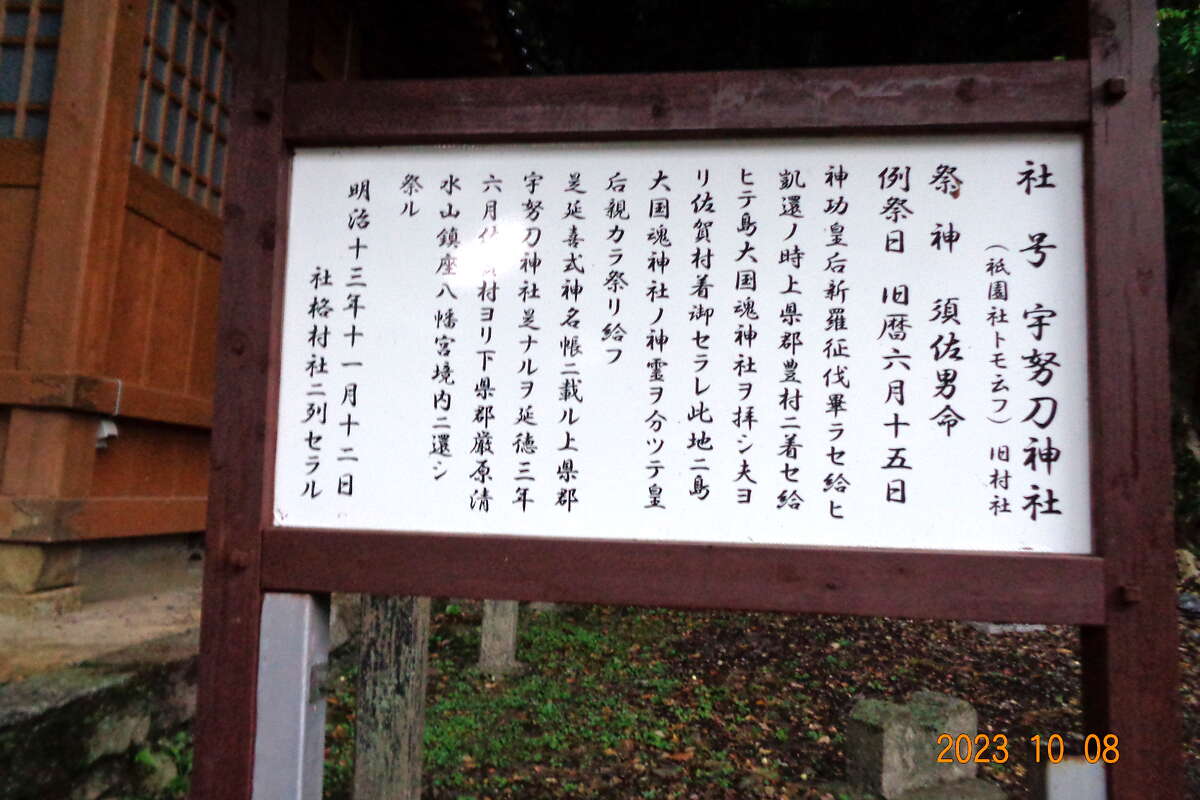 社号 宇努刀神社
（祇園社トモ云フ）旧村社
祭神 須佐男命
例祭日 旧暦六月十五日
神功皇后新羅征伐畢ラセ給ヒ
凱還ノ時上県郡豊村ニ着セ給
ヒテ島大国魂神社ヲ拝シ夫ヨ
リ佐賀村着御セラレ此地ニ島
大国魂神社ノ神霊ヲ分ツテ皇
后親カラ祭リ給フ
是延喜式神名帳ニ載ル上県郡
宇努刀神社是ナルヲ延徳三年
六月佐賀村ヨリ下県郡厳原清
水山鎮座八幡宮境内ニ還シ
祭ル
明治十三年十一月十二日
社格村社ニ列セラル
2023 10 08